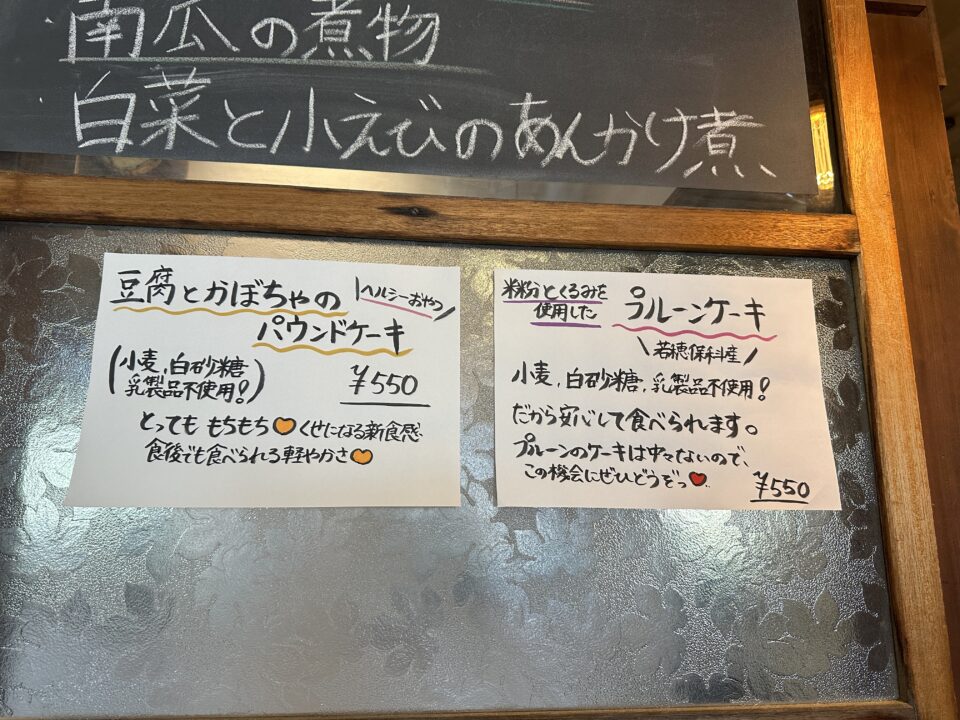 ・南瓜の煮物
・白菜と小えびのあんかけ煮
豆腐とかぼちゃの
パウンドケーキ
\ヘルシーおやつ/
(小麦、白砂糖
乳製品不使用!)
¥550
とっても もちもち🧡くせになる新食感
食後でも食べられる軽やかさ🧡
米粉とくるみを
使用した
プルーンケーキ
\若穂保科産/
小麦、白砂糖、乳製品不使用!
だから安心して食べられます。
プルーンのケーキは中々ないので、
この機会にぜひどうぞっ❤
¥550